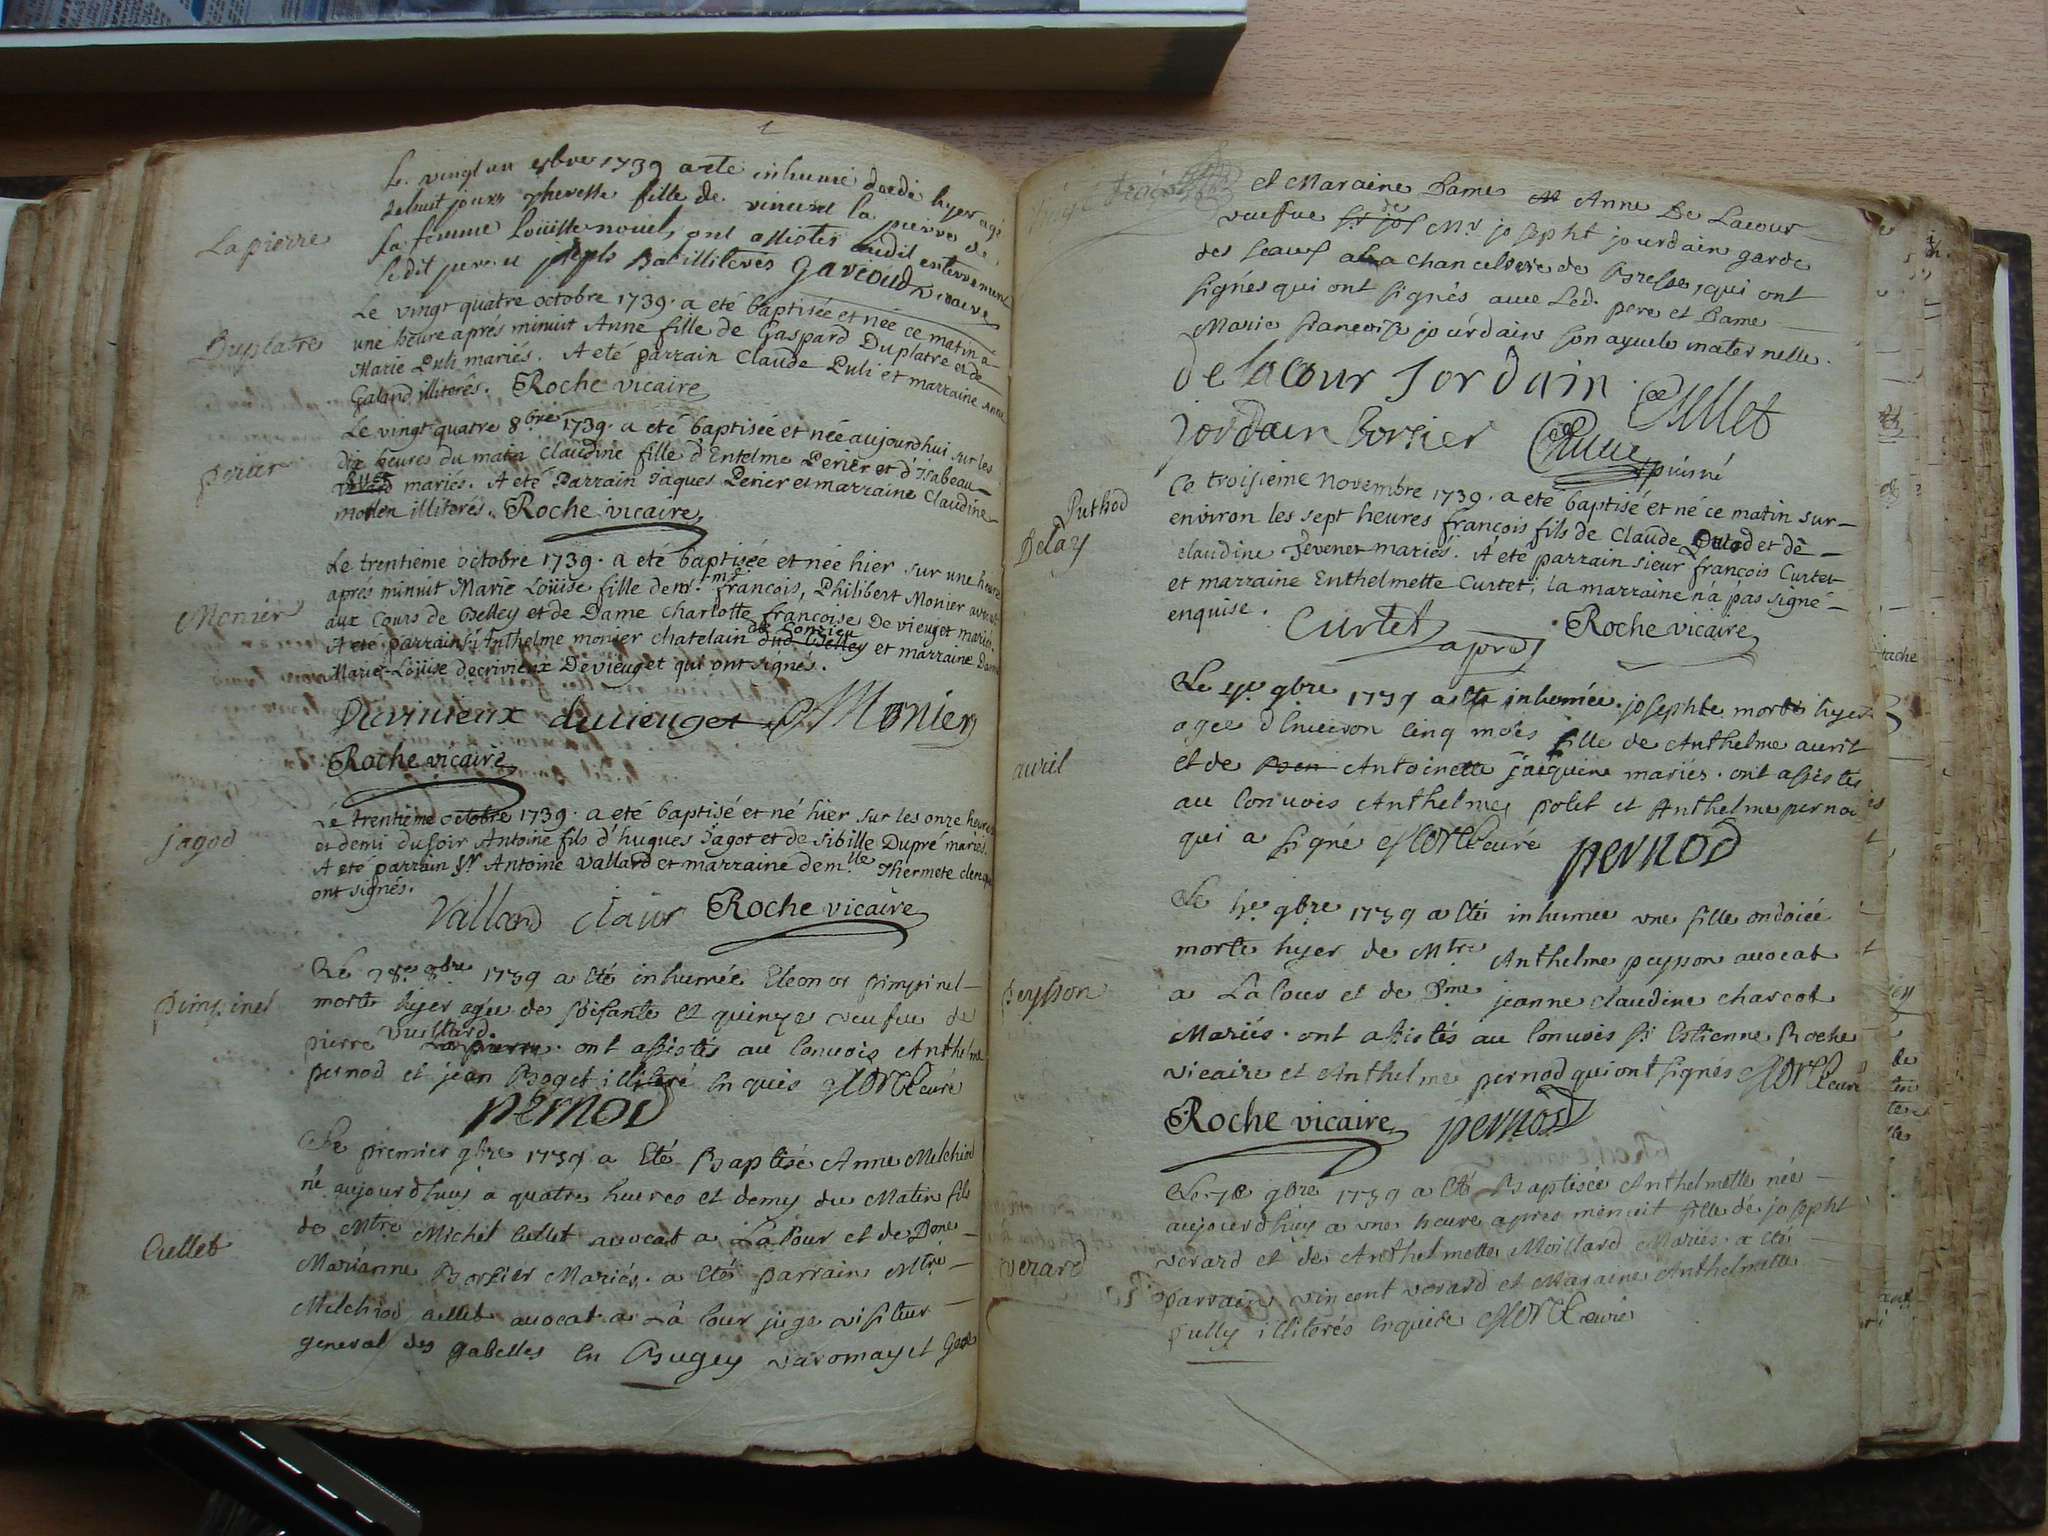 Lapierre
Le vingt un 8bre 1739 a eté inhumé decedé hyer agé
de huit jours Theresse fille de vincent la pierre et de
sa femme Loüisse nouel, ont assistés audit enterrement
ledit pere et joseph illiterés Gavioud vicaire
Duplatre
Le vingt quatre octobre 1739. a eté baptisée et née ce matin à
une heure aprés minuit Anne fille de Gaspard Duplatre et de
Marie Puli mariés. A eté parrain Claude Puli et marraine Anne
Galand illiterés. Roche vicaire
perier
Le vingt quatre 8bre 1739. a eté baptisée et née aujourdhui sur les
dix heures du matin Claudine fille d'Entelme Perier et d'Isabeau
mariés. A eté Parrain Jaques Perier et marraine Claudine
illiterés. Roche vicaire
Monier
Le trentieme octobre 1739. a eté baptisée et née hier sur une heure
aprés minuit Marie Loüise fille de mr. françois, Philibert Monier avocat
aux Cours de Belley et de Dame Charlotte françoise De vieuget mariés.
A eté parrain Sr. Anthelme monier chatelain de Belley et marraine Dame
Marie-Loüise decrivieux Devieuget qui ont signés.
Decrivieux devieuget Monier
Roche vicaire
jagod
Le trentieme octobre 1739. a eté baptisé et né hier sur les onze heures
et demi du soir Antoine fils d'hugues Jagot et de Sibille Dupré mariés.
A eté parrain Sr. Antoine Vallard et marraine demlle Thermete clerc qui
ont signés.
Vallard Claire Roche vicaire
pimpinel
Le 28e 8bre 1739 a eté inhumée Eleonor pimpinel
morte hyer agée de soisante et quinze veufue de
pierre Vuillard. ont assistés au Convois Anthelme
pernod et jean Roget illiteré Enquis curé
pernod
Cullet
Le premier 9bre 1739 a Eté Baptisé Anne Melchiod
né aujourdhuy a quatre heures et demy du Matin fils
de Mtre Michel Cullet avocat a La Cour et de Dme
Marianne Borsier Mariés. a Eté parrain Mtre
Melchiod cullet avocat a La Cour juge visiteur
general des gabelles En Bugey varomay et Gex
vingt trois
et Maraine Dame Anne De Lacour
veufue de Mr josepht jourdain garde
des sceaux a la chancelerie de Bresse, qui ont
signés qui ont signés avec Led. pere et Dame
Marie francoise jourdain son ayeule maternelle.
delacour Jordain Cullet
jordain borsier Cullet puisné
Puthod
Delay
Ce troisieme Novembre 1739. a eté baptisé et né ce matin sur
environ les sept heures françois fils de Claude et de
claudine Tevenet mariés. A eté parrain sieur françois Curtet
et marraine Enthelmette Curtet; la marraine n'a pas signé
enquise. Curtet Roche vicaire
avril
Le 4e 9bre 1739 a eté inhumée josephte morte hyer
agée dEnuiron Cinq mois fille de Anthelme auril
Et de Antoinette jacquine mariés. ont assistés
au Conuois Anthelme polet et Anthelme pernod
qui a signé curé pernod
peysson
Le 5e 9bre 1739 a eté inhumée une fille ondoiée
morte hyer de Mtre Anthelme peysson auocat
a La Cour et de Dme jeanne claudine charcot
Mariés. ont assistés au Conuois Sr Estienne Roche
vicaire et Anthelme pernod qui ont signés curé
Roche vicaire pernod
verard
Le 7e 9bre 1739 a eté Baptisée Anthelmette née
aujourdhuy a une heure apres minuit fille de josepht
verard et de Anthelmette Moillard Mariés. a eté
parrain vincent verard et Maraine Anthelmette
pully illiterés Enquise curé